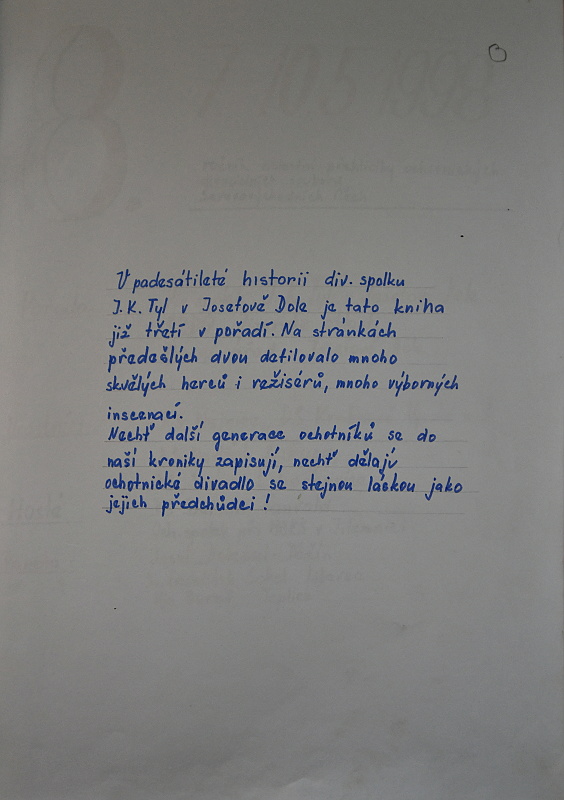 V padesátileté historii div. spolku
J. K. Tyl v Josefově Dole je tato kniha
již třetí v pořadí. Na stránkách
předešlých dvou defilovalo mnoho
skvělých herců i režisérů, mnoho výborných
inscenací.
Nechť další generace ochotníků se do
naší kroniky zapisují, nechť dělají
ochotnická divadlo se stejnou láskou jako
jejich předchůdci !